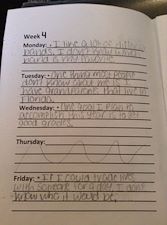 Week 4
Monday: • I like a lot of different
bands, I don't have one
band is my favorite.
Tuesday: • One thing most people
don't know about me is I
have grandparents that live in
Florida.
Wednesday: • One goal I plan to
accomplish this year is to get
good grades.
Thursday:
Friday: • If I could trade lives
with someone for a day I don't
know who it would be.